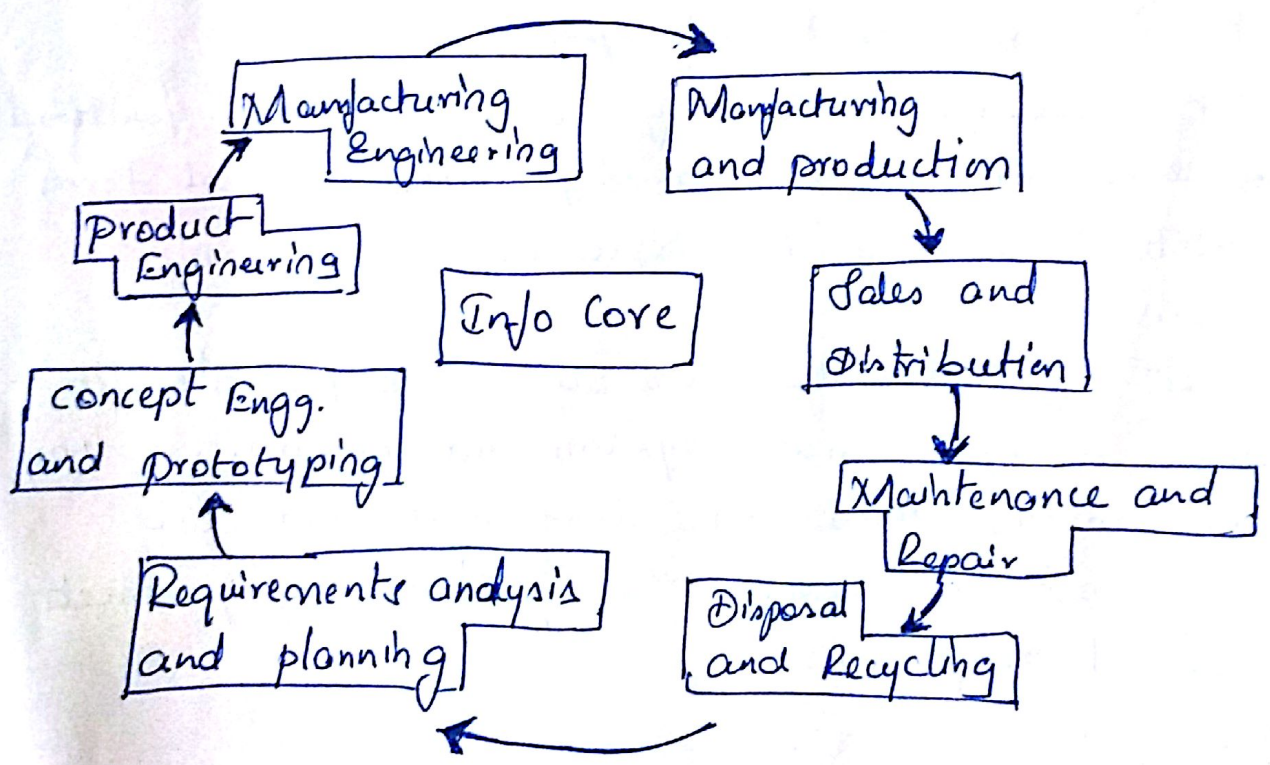 Manufacturing
Engineering
Manufacturing
and production
Product
Engineering
Info Core
Sales and
Distribution
Concept Engg.
and prototyping
Maintenance and
Repair
Requirements analysis
and planning
Disposal
and Recycling